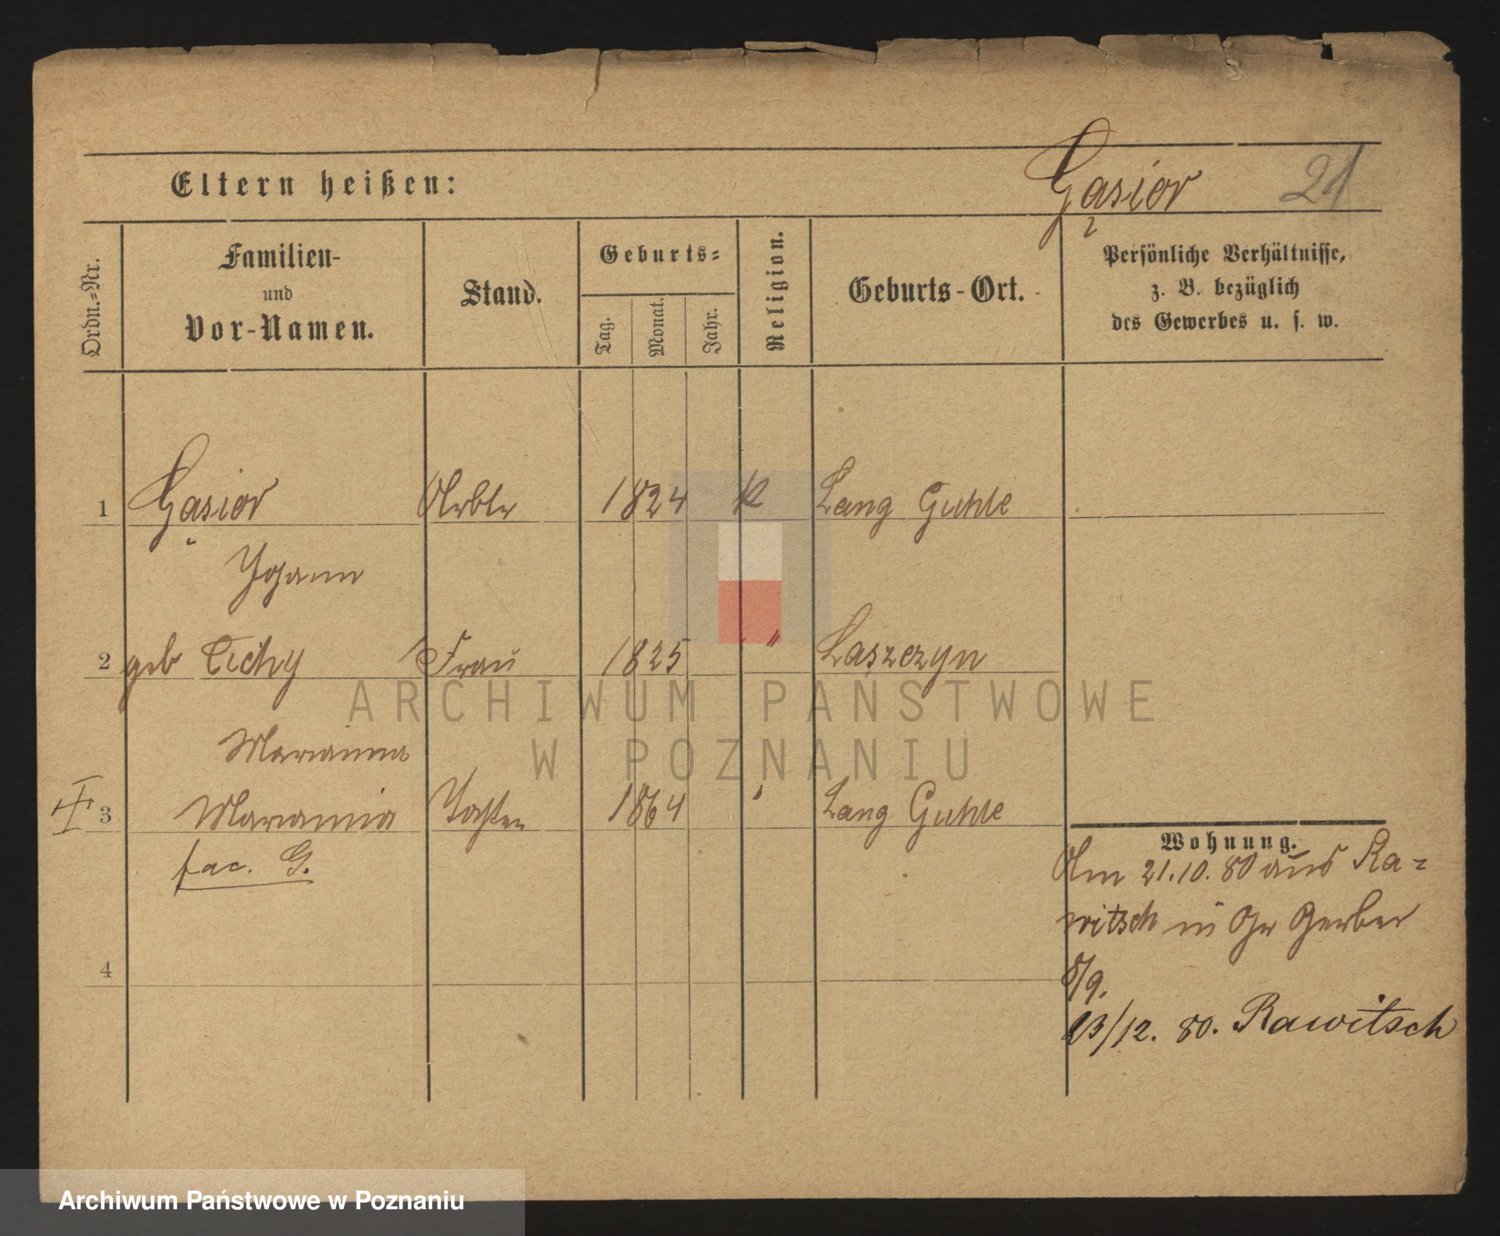 Eltern heißen:
Gąsior 21
Ordn.=Nr.
Familien-
und
Vor-Namen.
Stand.
Geburts=
Tag.
Monat.
Jahr.
Religion.
Geburts-Ort.
Persönliche Verhältnisse,
z. B. bezüglich
des Gewerbes u. s. w.
1 Gąsior Arbtr 1824 K Lang Guhle
Johann
2 geb Cichy Frau 1825 " Łaszczyn
Marianna
3 Marianna Tochter 1864 " Lang Guhle
fac. G.
4
Wohnung.
Am 21.10.80 aus Ra=
witsch in Gr Gerber
8/9.
23/12. 80. Rawitsch
ARCHIWUM PAŃSTWOWE
W POZNANIU
Archiwum Państwowe w Poznaniu